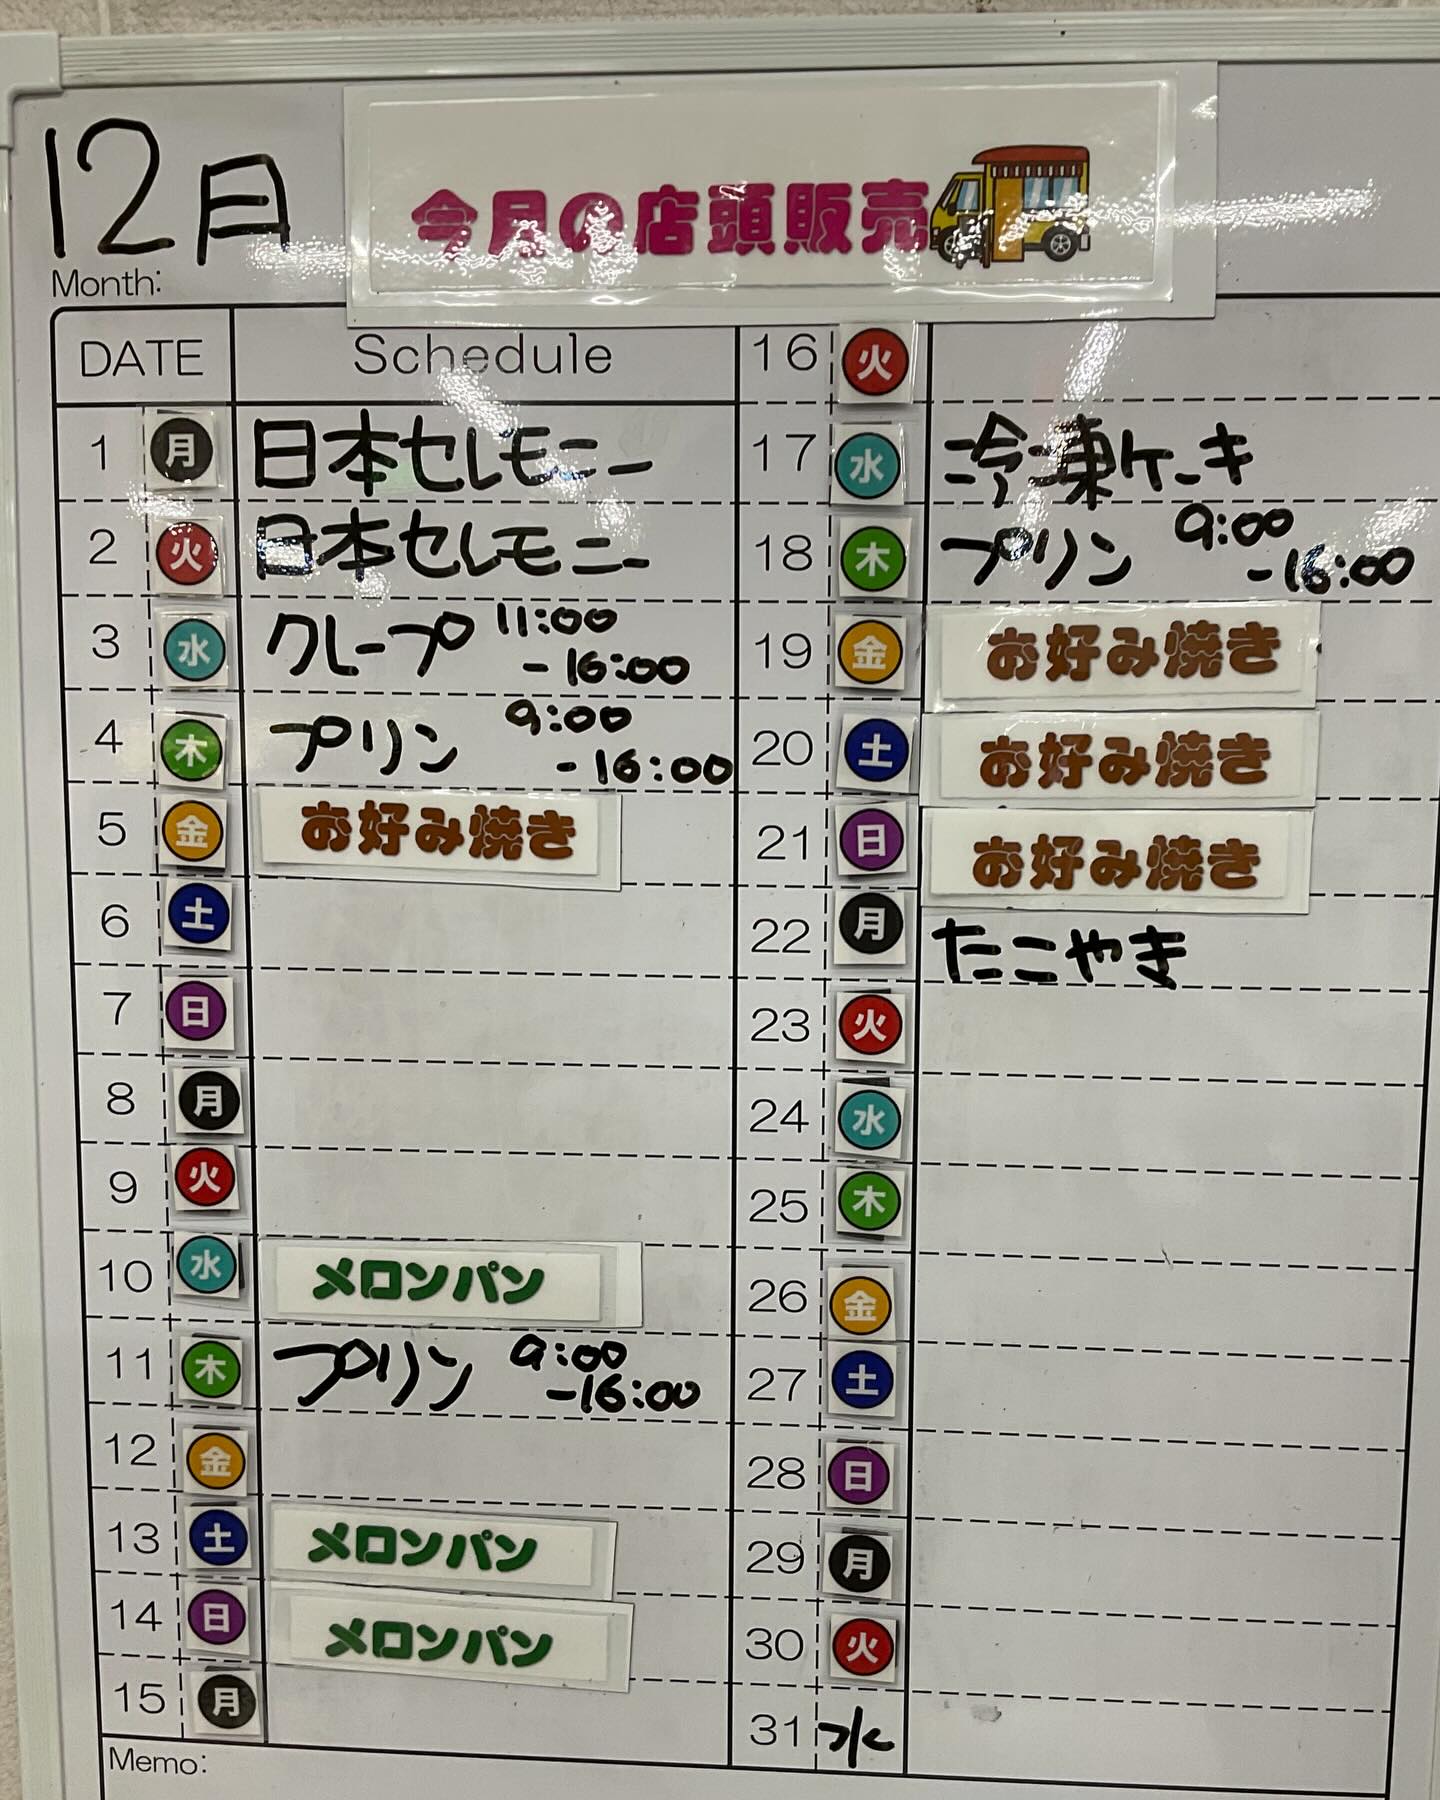 12月
今月の店頭販売
Month:
DATE Schedule
1 月 日本セレモニー
2 火 日本セレモニー
3 水 クレープ 11:00
-16:00
4 木 プリン 9:00
-16:00
5 金 お好み焼き
6 土
7 日
8 月
9 火
10 水 メロンパン
11 木 プリン 9:00
-16:00
12 金
13 土 メロンパン
14 日 メロンパン
15 月
Memo:
16 火
17 水 冷凍ケーキ
18 木 プリン 9:00
-16:00
19 金 お好み焼き
20 土 お好み焼き
21 日 お好み焼き
22 月 たこやき
23 火
24 水
25 木
26 金
27 土
28 日
29 月
30 火
31 水